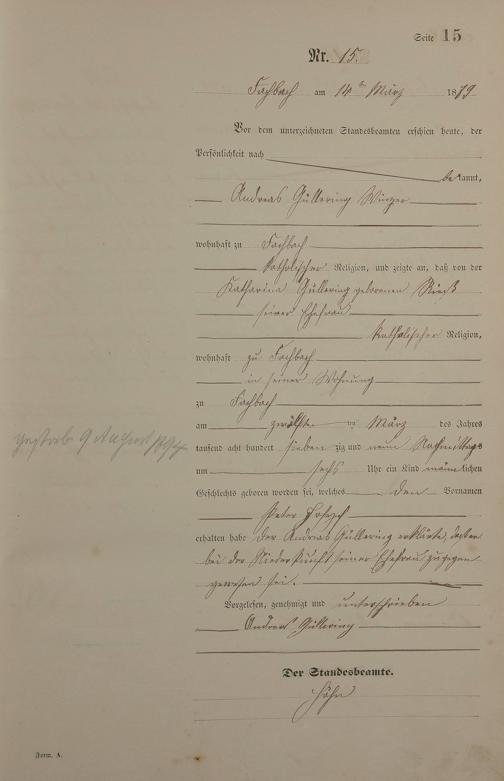 Seite 15
Nr. 15.
Fachbach am 14ten März 1879
Vor dem unterzeichneten Standesbeamten erschien heute, der
Persönlichkeit nach
bekannt,
Andreas Güllering Winzer
wohnhaft zu Fachbach
katholischer Religion, und zeigte an, daß von der
Katharina Güllering geborenen
seiner Ehefrau
katholischer Religion,
wohnhaft zu Fachbach
in seiner Wohnung
zu Fachbach
am zwölften März des Jahres
tausend acht hundert siebenzig und neun Nachmittags
um sechs Uhr ein Kind männlichen
Geschlechts geboren worden sei, welches den Vornamen
Peter Joseph
erhalten habe der Andreas Güllering erklärte, daß er
bei der Niederkunft seiner Ehefrau zugegen
gewesen sei.
Vorgelesen, genehmigt und unterschrieben
Andreas Güllering
Der Standesbeamte.
Höhn
gestorb 9 August
Form. A.